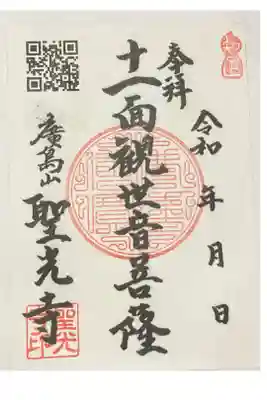 令和 年 月 日
奉拝
十一面観世音菩薩
廣島山
聖光寺
聖光寺印